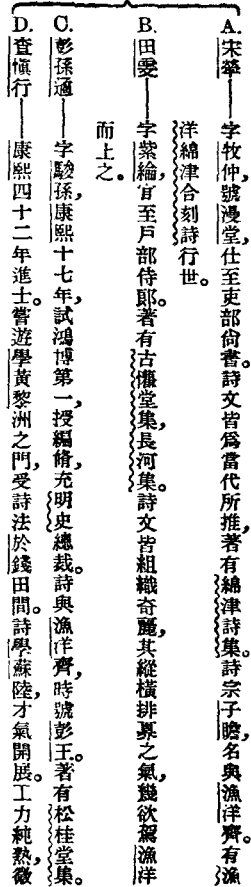 A. 宋犖——字牧仲，號漫堂，仕至吏部尙書。詩文皆爲當代所推，著有綿津詩集。詩宗子瞻，名與漁洋齊。有漁
洋綿津合刻詩行世。
B. 田雯——字紫綸，官至戶部侍郎。著有古懽堂集，長河集。詩文皆組織奇麗，其縱橫排奡之氣，幾欲駕漁洋
而上之。
C. 彭孫遹——字駿孫，康熙十七年，試鴻博第一，授編脩，充明史總裁。詩與漁洋齊，時號彭王。著有松桂堂集。
D. 查愼行——康熙四十二年進士。嘗遊學黃黎洲之門，受詩法於錢田間。詩學蘇陸，才氣開展。工力純熟，微